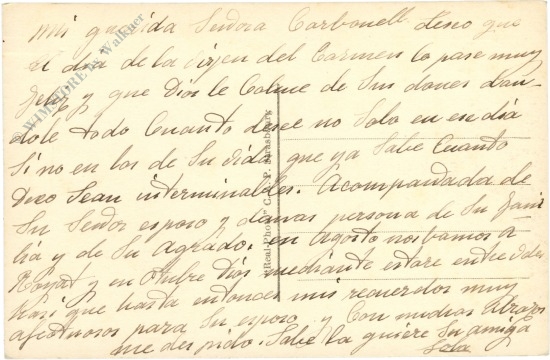 mi querida Señora Carbonell deseo que
el dia de la virjen del Carmen lo pase muy
feliz y que Dios le Colme de Sus dones dan
dole todo Cuanto desee no Solo en ese dia
Si no en los de Su vida que ya Sabe Cuanto
Deseo Sean interminables. Acompañada de
Su Señor esposo y demas persona de Su fami
lia y de Su agrado. en Agosto nos bamos a
Royat y en Otubre Dios mediante estare entre
Kasi que hasta entonces mis recuerdos muy
afectuosos para Su esposo y Con muchos abrazos
me despido. Sabe la quiere Su amiga
Lola
Real-Photo C. P. Strasbourg
WIMMORE by Walkner